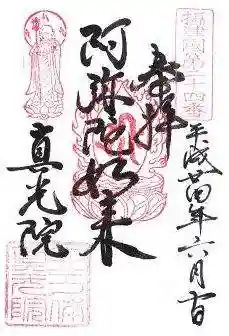 攝津國第二十四番
平成廿四年六月吉日
奉拝
阿弥陀如来
真光院